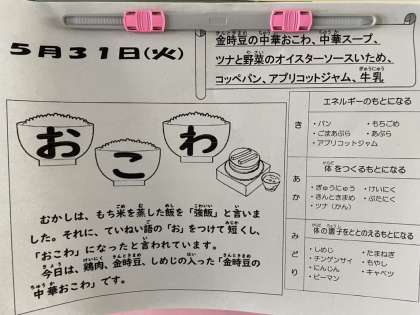 5月31日(火)
金時豆の中華おこわ、中華スープ、
ツナと野菜のオイスターソースいため、
コッペパン、アプリコットジャム、牛乳
おこわ
むかしは、もち米を蒸した飯を「強飯」と言い
ました。それに、ていねい語の「お」をつけて短くし、
「おこわ」になったと言われています。
今日は、鶏肉、金時豆、しめじの入った「金時豆の
中華おこわ」です。
エネルギーのもとになる
き
・パン ・もちごめ
・ごまあぶら ・あぶら
・アプリコットジャム
体をつくるもとになる
あか
・ぎゅうにゅう ・けいにく
・きんときまめ ・ぶたにく
・ツナ(かん)
体の調子をととのえるもとになる
みどり
・しめじ ・たまねぎ
・チンゲンサイ ・もやし
・にんじん ・キャベツ
・ピーマン